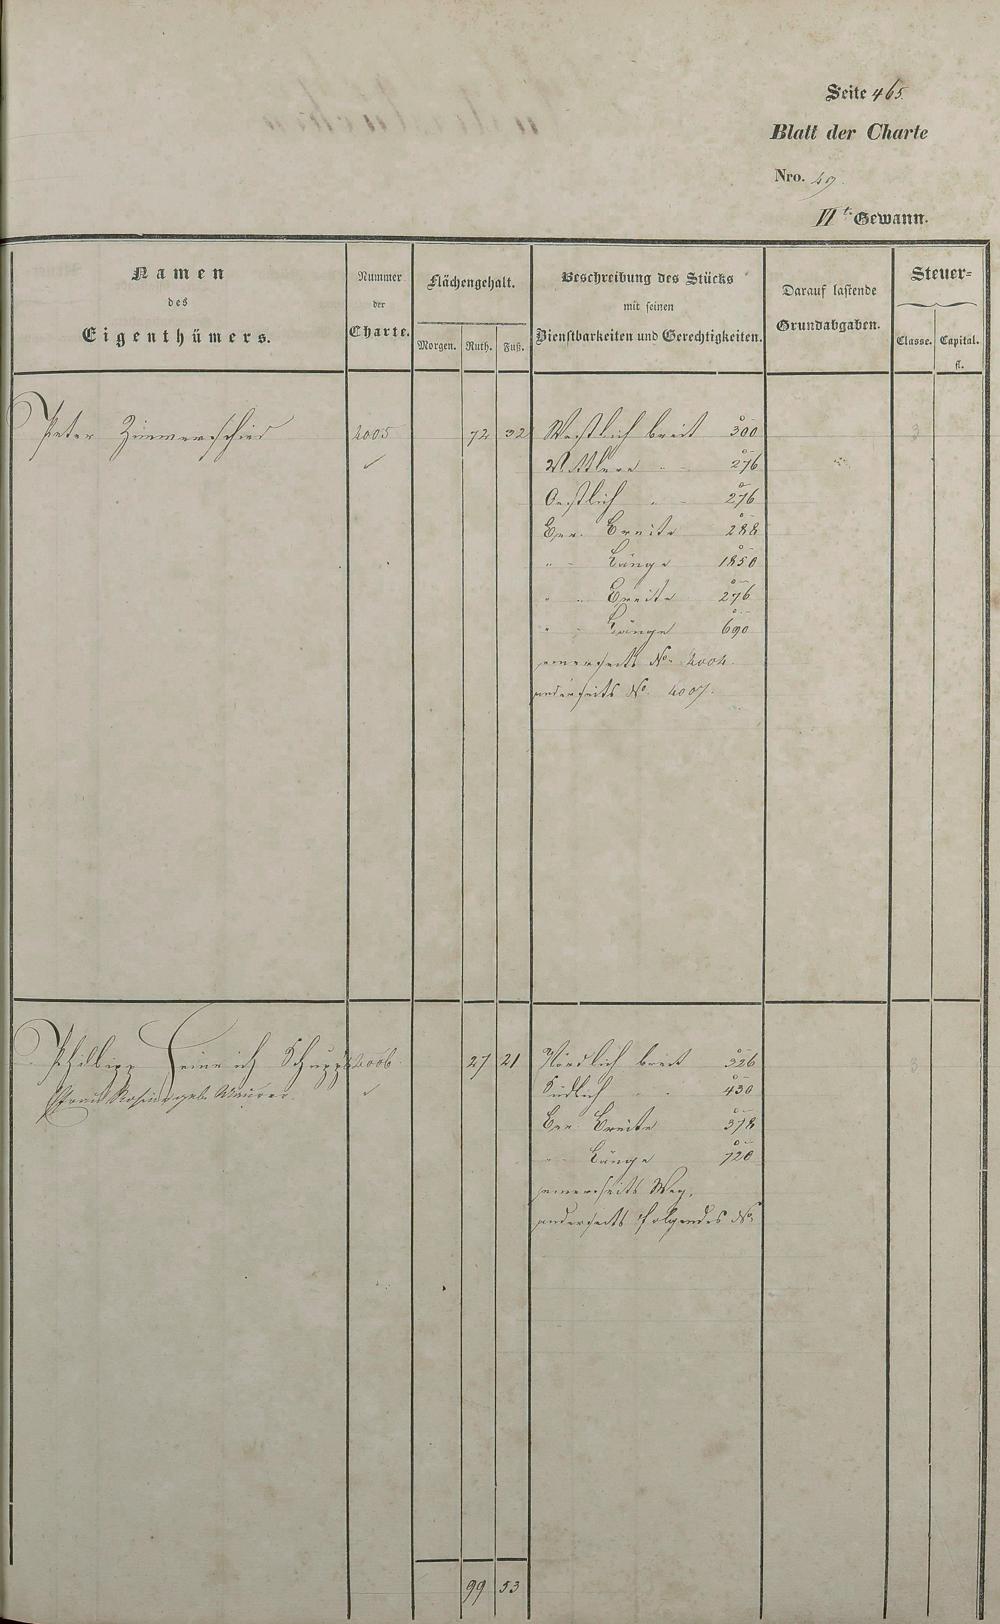 Seite 465.
Blatt der Charte
Nro. 49.
VIt. Gewann.
Namen
des
Eigenthümers.
Nummer
der
Charte.
Flächengehalt.
Morgen. Ruth. Fuß.
Beschreibung des Stücks
mit seinen
Dienstbarkeiten und Gerechtigkeiten.
Darauf lastende
Grundabgaben.
Steuer=
Classe. Capital.
fl.
Peter Zimmerschied 4005 72 32 Westlich breit 300 3
Mittlere " 276
Oestlich " 276
Ber. Breite 288
" Länge 1850
" Breite 276
" Länge 690
einerseits No. 4004.
anderseits No. 4007.
Philipp Heinrich Schupp 4006 27 21 Nördlich breit 326 3
Frau Rosina geb. Maurer. Südlich " 430
Ber. Breite 378
" Länge 720
einerseits Weg,
anderseits folgendes No.
99 53